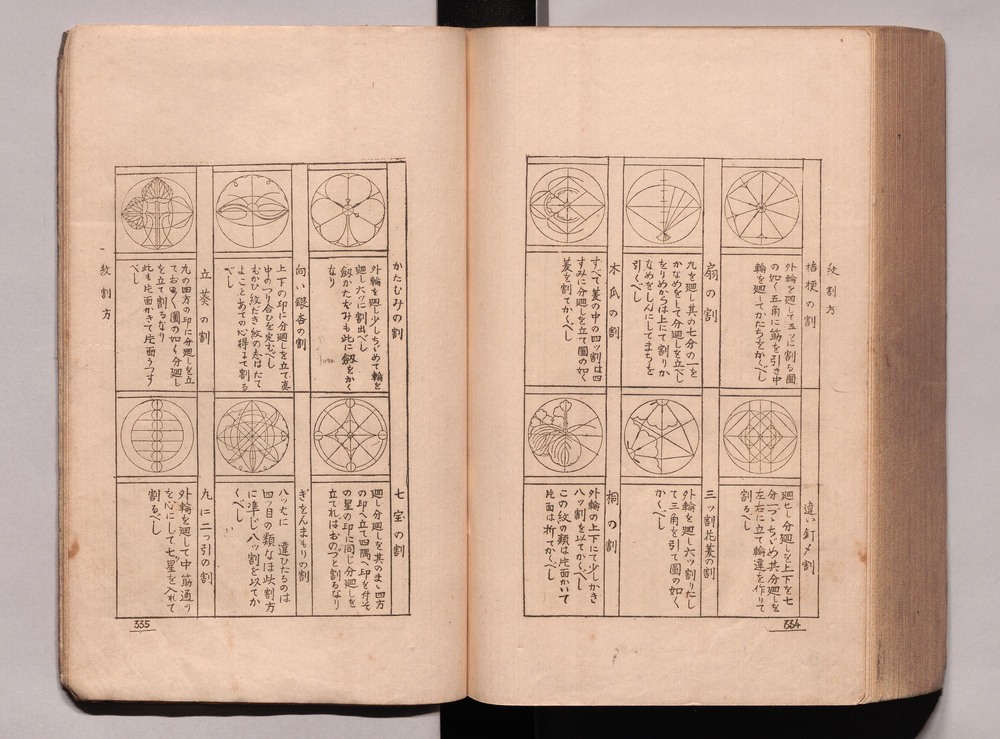 紋割方
桔梗の割
外輪を廻して五ッに割る圖
の如く五角に筋を引き中
輪を廻してかたちをかくべし
扇の割
丸を廻し其の七分の一を
かなめをして分廻しを立べし
をりめからは上にて割りか
なめをしんにしてまちを
引くべし
木瓜の割
すべて菱の中の四ッ割は四
すみに分廻しを立て圖の如く
菱を割てかくべし
違い釘〆割
廻し分廻しを上下を七
分二つゝちゞめ其分廻しを
左右に立て輪違を作りて
割るべし
三ッ割花菱の割
外輪を廻し六ッ割りたし
て三角を引て圖の如く
かくべし
桐の割
外輪の上下にて少しかき
八ッ割を以てかくべし
この紋の類は片面かいて
片面は折てかくべし
334
かたばみの割
外輪を廻し少しちゞめて輪を
廻し六ッに割出べし
劔かたばみも此に劔をかく
なり
向い銀杏の割
上下の印に分廻しを立て真
中のつり合ひを定むべし
むかひ紋だき紋の志はたて
よことあての心得ゑて割る
べし
立葵の割
丸の四方の印に分廻しを立
ておき、圖の如く分廻し
を立て割るなり
此も片面かきて片面うつす
べし
七宝の割
廻し分廻しを其のまゝ四方
の印へ立て四隅へ印を付そ
の星の印に同じ分廻しを
立てればおのづと割るなり
ぎをんまもりの割
八ッ七に 違ひたるのは
四ッ目の類なほ此割方
に準じ八ッ割を以てか
くべし
丸に二つ引の割
外輪を廻して中筋通り
を心にして七ッ星を入れて
割るべし
紋割方
335